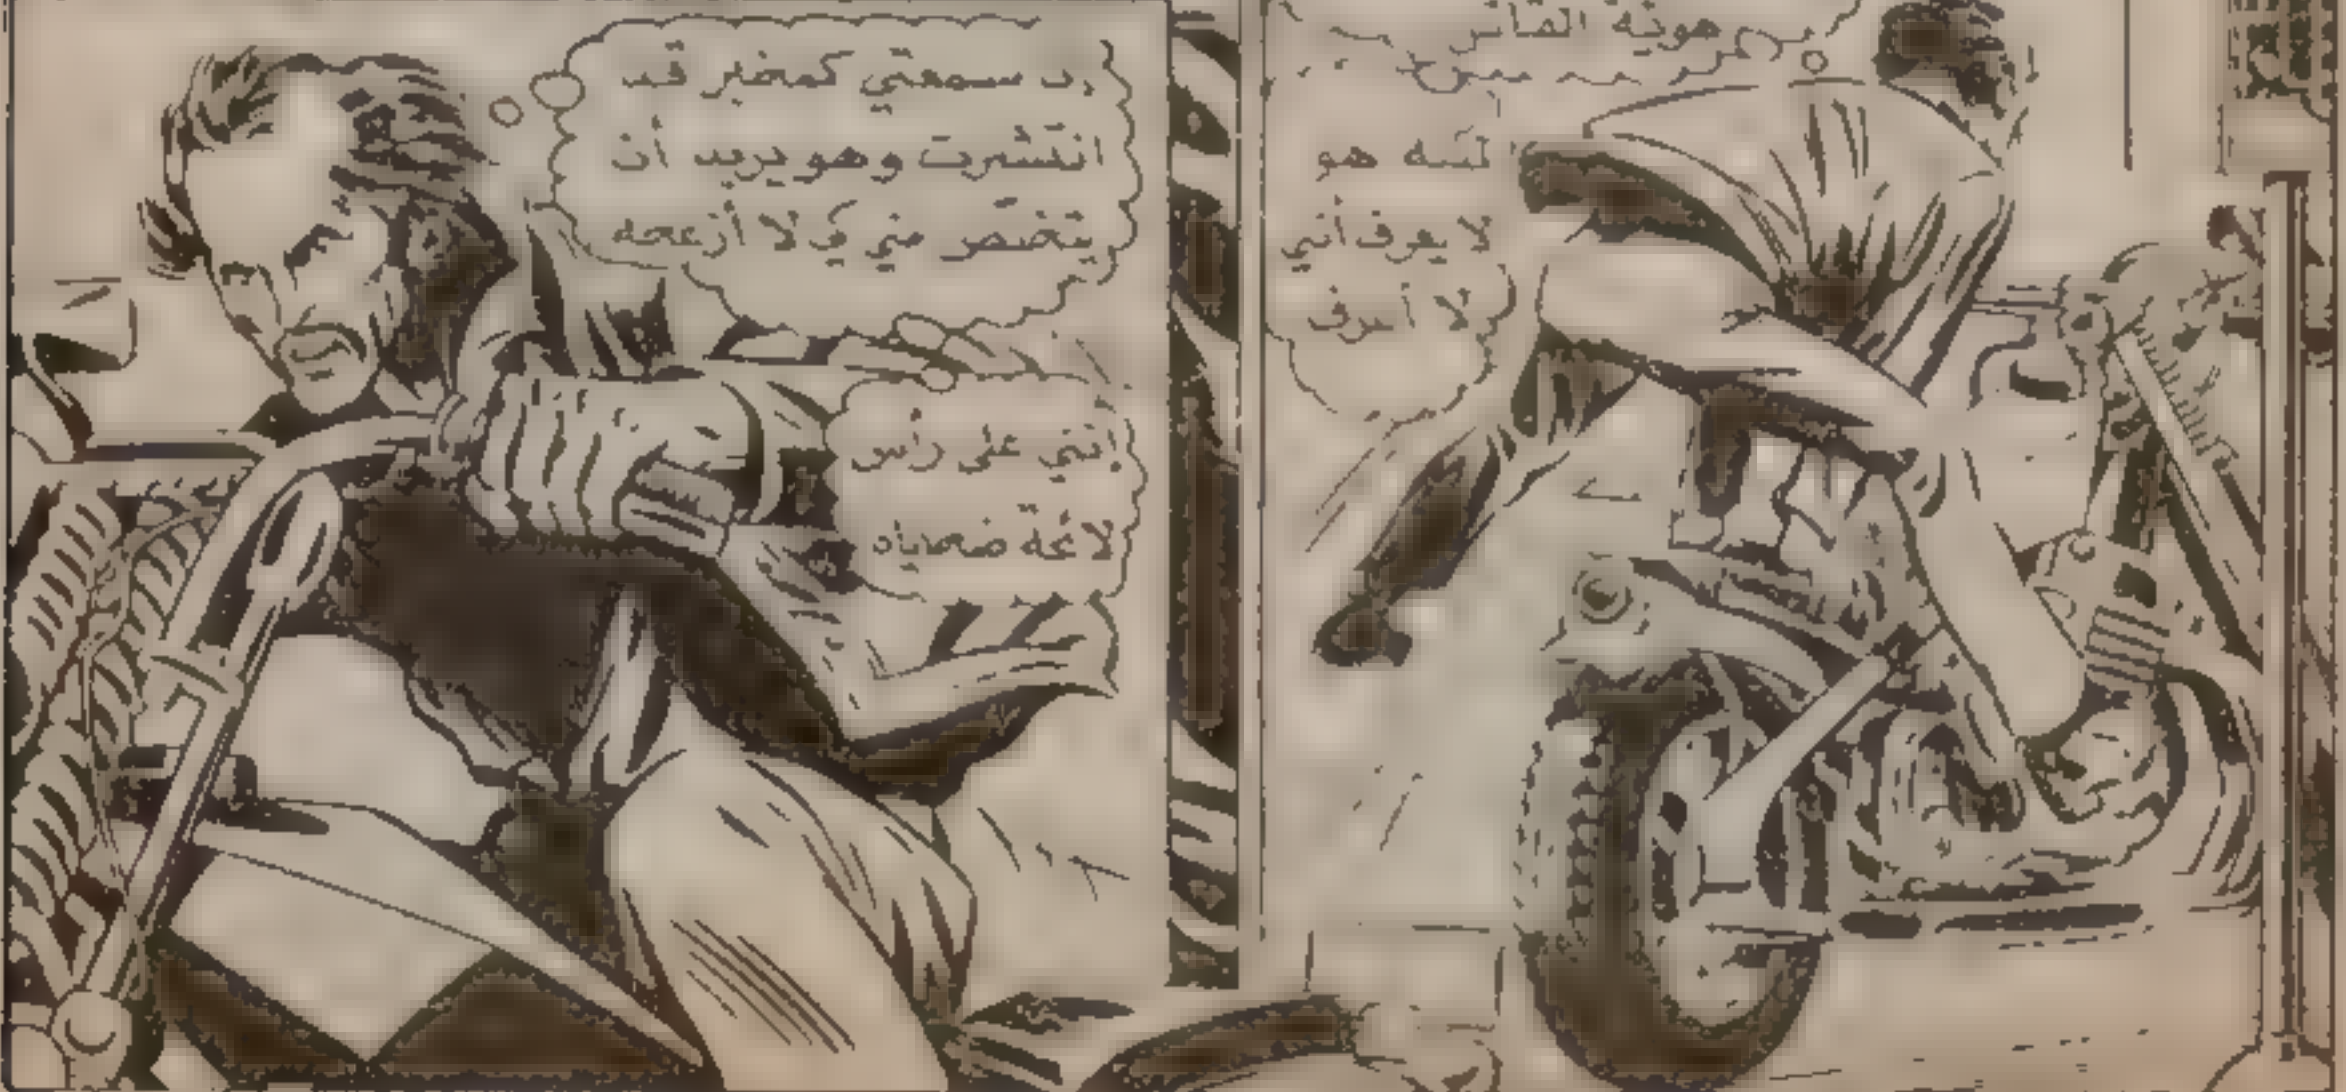 هوية القاتل
لكنه هو
لا يعرف أنني
لا أعرف
إن سمعتي كمخبر قد
انتشرت وهو يريد أن
يتخلص مني كي لا أزعجه
إنني على رأس
لائحة ضحاياه